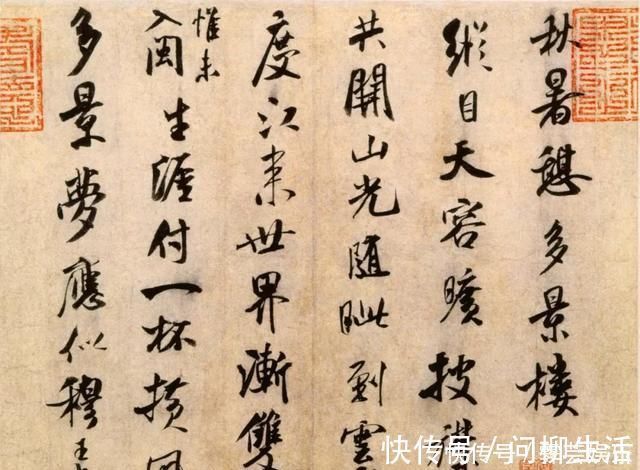 秋暑憩多景樓
縱目天容曠披襟
共開山光隨眦到雲
度江來世界漸雙
惟未
入閩生涯付一杯橫風
多景夢應似穆王
快传号 / 问柳生活